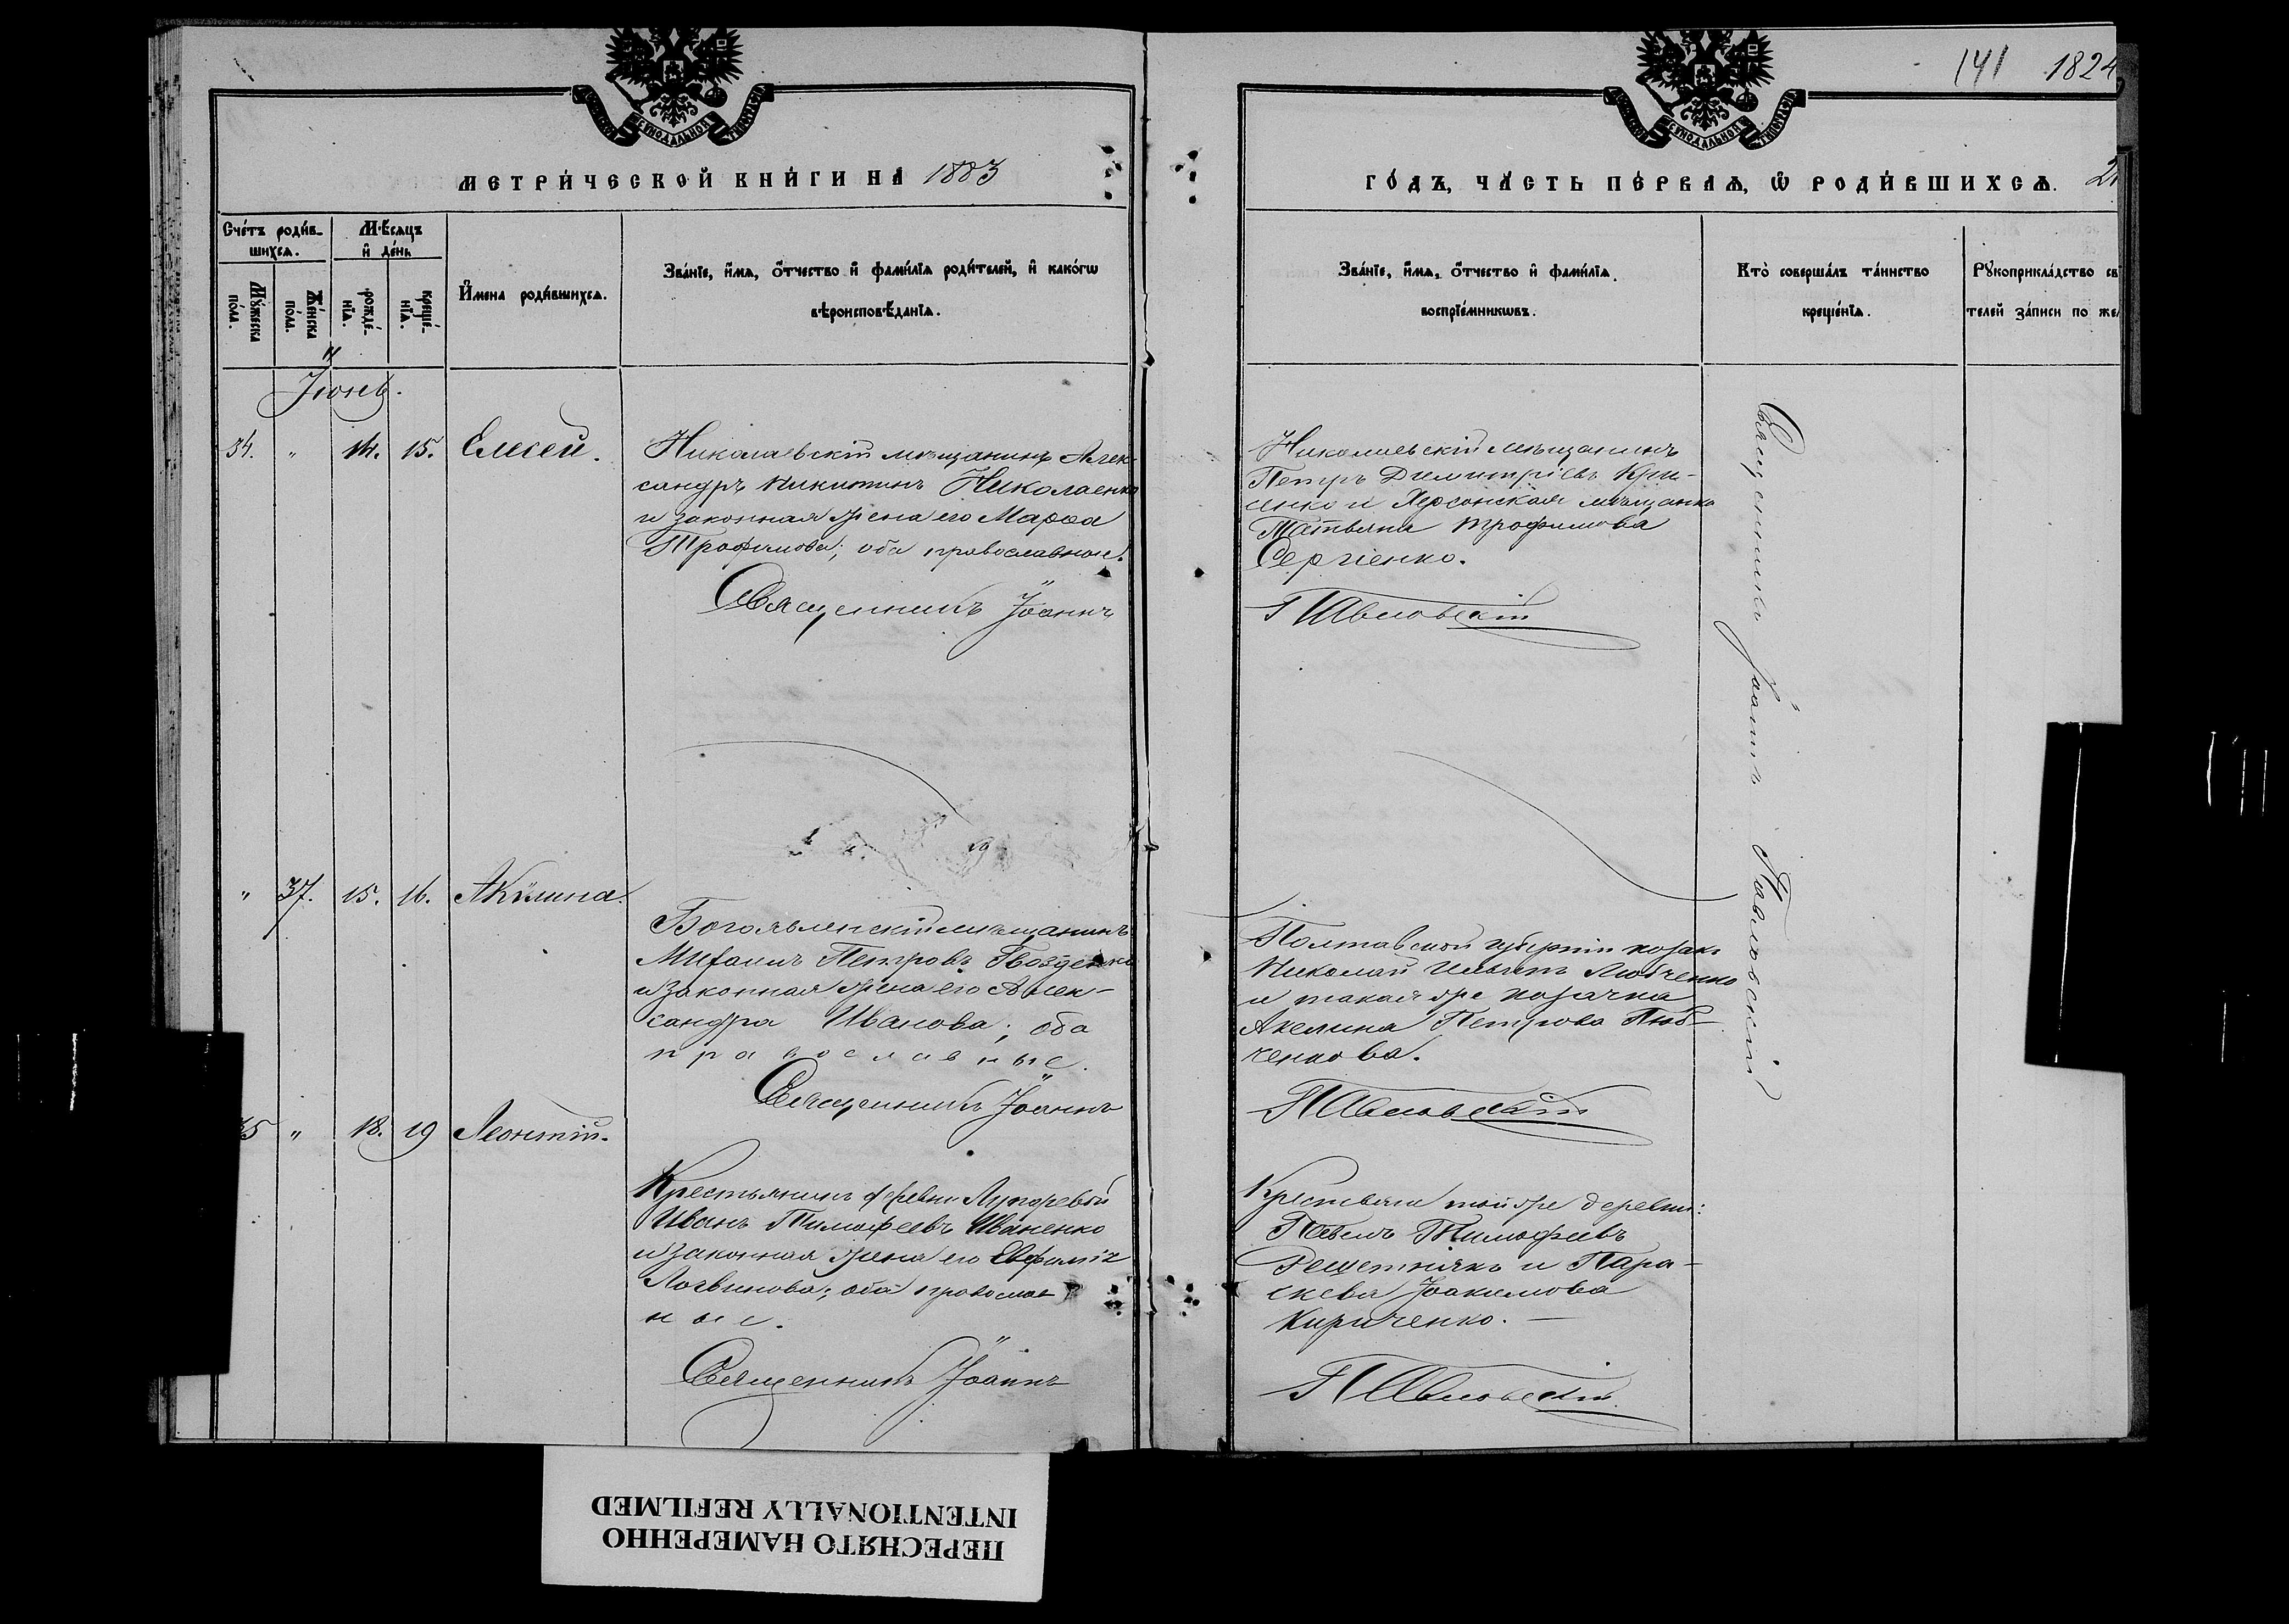 141 1824
МЕТРИЧЕСКОЙ КНИГИ НА 1883
ГОДЪ, ЧАСТЬ ПЕРВАЯ, Ѡ РОДИВШИХСЯ.
Счетъ родив-
шихся.
Мѣсяцъ
и день
Мужеска
пола.
Женска
пола.
рожде-
нія.
креще-
нія.
Имена родившихся.
Званіе, имя, отчество и фамилія родителей, и какогѡ
вѣроисповѣданія.
Званіе, имя, отчество и фамилія
воспріемникѡвъ.
Кто совершалъ таинство
крещенія.
Рукоприкладство св
телей записи по же
Іюнь.
34. " 14. 15. Елисей.
Николаевскій мѣщанинъ Алек-
сандръ Никитинъ Николаенко
и законная жена его Марѳа
Трофимова; оба православные.
Священникъ Іоаннъ
Николаевскій мѣщанинъ
Петръ Димитріевъ
и Херсонская мѣщанка
Татьяна Трофимова
Сергіенко.
Павловскій
Священникъ Іоаннъ Павловскій
" 37. 15. 16. Акѵлина.
Богоявленскій мѣщанинъ
Михаилъ Петровъ Гвозденко
и законная жена его Алек-
сандра Иванова; оба
православные.
Священникъ Іоаннъ
Полтавской губерніи козакъ
Николай Ильинъ Любченко
и такая же козачка
Акелина Петрова Люб-
ченкова.
Павловскій
35 " 18. 19 Леонтій.
Крестьянинъ деревни Лупаревой
Иванъ Тимофеевъ Иваненко
и законная жена его Евфимія
Логвинова; оба православ
ные.
Священникъ Іоаннъ
Крестьяне той же деревни:
Павелъ Тимофеевъ
Решетникъ и Пара-
скева Іоакимова
Кириченко. —
Павловскій
ПЕРЕСНЯТО НАМЕРЕННО
INTENTIONALLY REFILMED